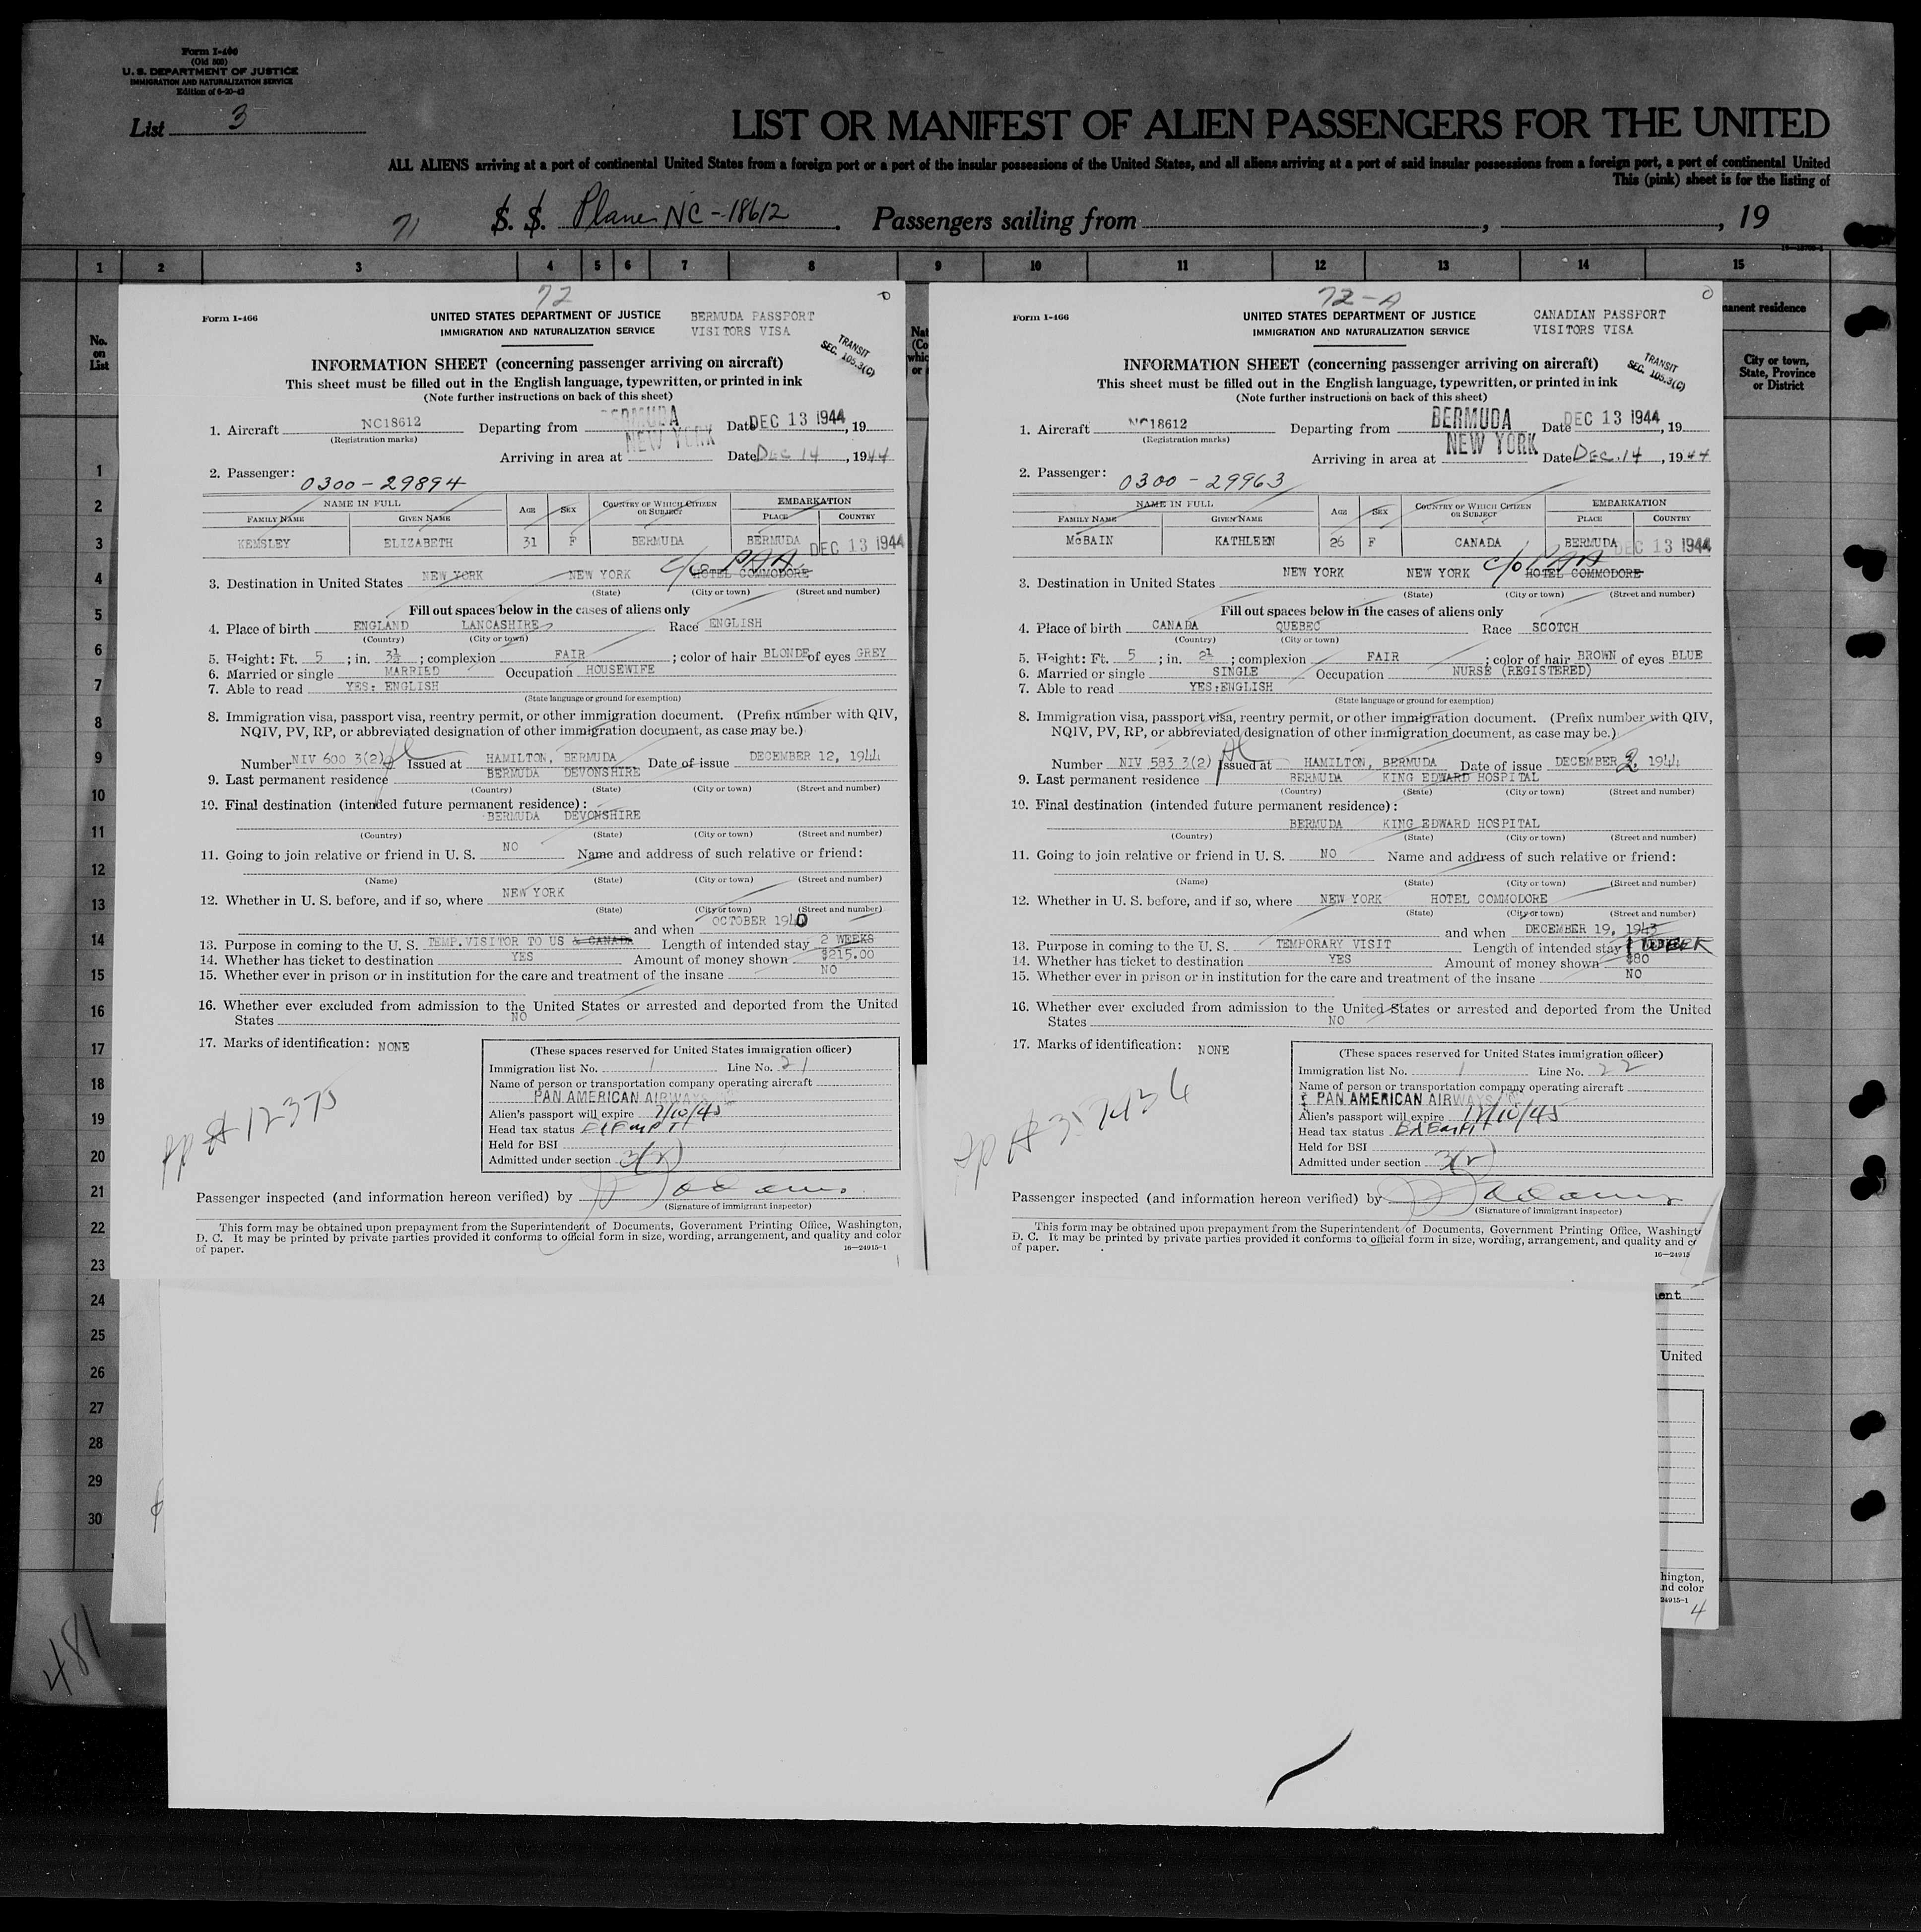 Form I-466
(Old 500)
U. S. DEPARTMENT OF JUSTICE
IMMIGRATION AND NATURALIZATION SERVICE
Edition of 6-20-43
List 3
LIST OR MANIFEST OF ALIEN PASSENGERS FOR THE UNITED
ALL ALIENS arriving at a port of continental United States from a foreign port or a port of the insular possessions of the United States, and all aliens arriving at a port of said insular possessions from a foreign port, a port of continental United
This (pink) sheet is for the listing of
71 S. S. Plane NC-18612. Passengers sailing from , , 19
1 2 3 4 5 6 7 8 9 10 11 12 13 14 15
No.
on
List
1
2
3
4
5
6
7
8
9
10
11
12
13
14
15
16
17
18
19
20
21
22
23
24
25
26
27
28
29
30
481
72
Form I-466
UNITED STATES DEPARTMENT OF JUSTICE
IMMIGRATION AND NATURALIZATION SERVICE
BERMUDA PASSPORT
VISITORS VISA
TRANSIT
SEC. 105.3(C)
INFORMATION SHEET (concerning passenger arriving on aircraft)
This sheet must be filled out in the English language, typewritten, or printed in ink
(Note further instructions on back of this sheet)
1. Aircraft NC18612 Departing from BERMUDA Date DEC 13 1944, 19
(Registration marks)
Arriving in area at NEW YORK Date DEC 14, 1944
2. Passenger: 0300-29894
NAME IN FULL
FAMILY NAME GIVEN NAME AGE SEX COUNTRY OF WHICH CITIZEN OR SUBJECT EMBARKATION PLACE COUNTRY
KEMSLEY ELIZABETH 31 F BERMUDA BERMUDA DEC 13 1944
c/o PAA
3. Destination in United States NEW YORK NEW YORK HOTEL COMMODORE
(State) (City or town) (Street and number)
Fill out spaces below in the cases of aliens only
4. Place of birth ENGLAND LANCASHIRE Race ENGLISH
(Country) (City or town)
5. Height: Ft. 5 ; in. 3½ ; complexion FAIR ; color of hair BLONDE of eyes GREY
6. Married or single MARRIED Occupation HOUSEWIFE
7. Able to read YES: ENGLISH
(State language or ground for exemption)
8. Immigration visa, passport visa, reentry permit, or other immigration document. (Prefix number with QIV,
NQIV, PV, RP, or abbreviated designation of other immigration document, as case may be.)
Number NIV 600 3(2) Issued at HAMILTON, BERMUDA Date of issue DECEMBER 12, 1944
9. Last permanent residence BERMUDA DEVONSHIRE
(Country) (State) (City or town) (Street and number)
10. Final destination (intended future permanent residence):
BERMUDA DEVONSHIRE
(Country) (State) (City or town) (Street and number)
11. Going to join relative or friend in U. S. NO Name and address of such relative or friend:
(Name) (State) (City or town) (Street and number)
12. Whether in U. S. before, and if so, where NEW YORK
(State) (City or town) (Street and number)
and when OCTOBER 1940
13. Purpose in coming to the U. S. TEMP. VISITOR TO US & CANADA Length of intended stay 2 WEEKS
14. Whether has ticket to destination YES Amount of money shown $215.00
15. Whether ever in prison or in institution for the care and treatment of the insane NO
16. Whether ever excluded from admission to the United States or arrested and deported from the United
States NO
17. Marks of identification: NONE
(These spaces reserved for United States immigration officer)
Immigration list No. 1 Line No. 21
Name of person or transportation company operating aircraft
PAN AMERICAN AIRWAYS
Alien's passport will expire 7/10/45
Head tax status EXEMPT
Held for BSI
Admitted under section 3(2)
pp # 12375
Passenger inspected (and information hereon verified) by Adams
(Signature of immigrant inspector)
This form may be obtained upon prepayment from the Superintendent of Documents, Government Printing Office, Washington,
D. C. It may be printed by private parties provided it conforms to official form in size, wording, arrangement, and quality and color
of paper. 16—24915-1
72-A
Form I-466
UNITED STATES DEPARTMENT OF JUSTICE
IMMIGRATION AND NATURALIZATION SERVICE
CANADIAN PASSPORT
VISITORS VISA
TRANSIT
SEC. 105.3(C)
INFORMATION SHEET (concerning passenger arriving on aircraft)
This sheet must be filled out in the English language, typewritten, or printed in ink
(Note further instructions on back of this sheet)
1. Aircraft NC18612 Departing from BERMUDA Date DEC 13 1944, 19
(Registration marks)
Arriving in area at NEW YORK Date DEC. 14, 1944
2. Passenger: 0300-29963
NAME IN FULL
FAMILY NAME GIVEN NAME AGE SEX COUNTRY OF WHICH CITIZEN OR SUBJECT EMBARKATION PLACE COUNTRY
McBAIN KATHLEEN 26 F CANADA BERMUDA DEC 13 1944
c/o PAA
3. Destination in United States NEW YORK NEW YORK HOTEL COMMODORE
(State) (City or town) (Street and number)
Fill out spaces below in the cases of aliens only
4. Place of birth CANADA QUEBEC Race SCOTCH
(Country) (City or town)
5. Height: Ft. 5 ; in. 2½ ; complexion FAIR ; color of hair BROWN of eyes BLUE
6. Married or single SINGLE Occupation NURSE (REGISTERED)
7. Able to read YES:ENGLISH
(State language or ground for exemption)
8. Immigration visa, passport visa, reentry permit, or other immigration document. (Prefix number with QIV,
NQIV, PV, RP, or abbreviated designation of other immigration document, as case may be.)
Number NIV 583 3(2) Issued at HAMILTON, BERMUDA Date of issue DECEMBER 2, 1944
9. Last permanent residence BERMUDA KING EDWARD HOSPITAL
(Country) (State) (City or town) (Street and number)
10. Final destination (intended future permanent residence):
BERMUDA KING EDWARD HOSPITAL
(Country) (State) (City or town) (Street and number)
11. Going to join relative or friend in U. S. NO Name and address of such relative or friend:
(Name) (State) (City or town) (Street and number)
12. Whether in U. S. before, and if so, where NEW YORK HOTEL COMMODORE
(State) (City or town) (Street and number)
and when DECEMBER 19, 1943
13. Purpose in coming to the U. S. TEMPORARY VISIT Length of intended stay 1 WEEK
14. Whether has ticket to destination YES Amount of money shown $80
15. Whether ever in prison or in institution for the care and treatment of the insane NO
16. Whether ever excluded from admission to the United States or arrested and deported from the United
States NO
17. Marks of identification: NONE
(These spaces reserved for United States immigration officer)
Immigration list No. 1 Line No. 22
Name of person or transportation company operating aircraft
PAN AMERICAN AIRWAYS
Alien's passport will expire 12/10/45
Head tax status Exempt
Held for BSI
Admitted under section 3(2)
Passenger inspected (and information hereon verified) by Adams
(Signature of immigrant inspector)
This form may be obtained upon prepayment from the Superintendent of Documents, Government Printing Office, Washingt
D. C. It may be printed by private parties provided it conforms to official form in size, wording, arrangement, and quality and c
of paper. 16—24915
manent residence
City or town,
State, Province
or District
ent
United
hington,
nd color
24915-1
4